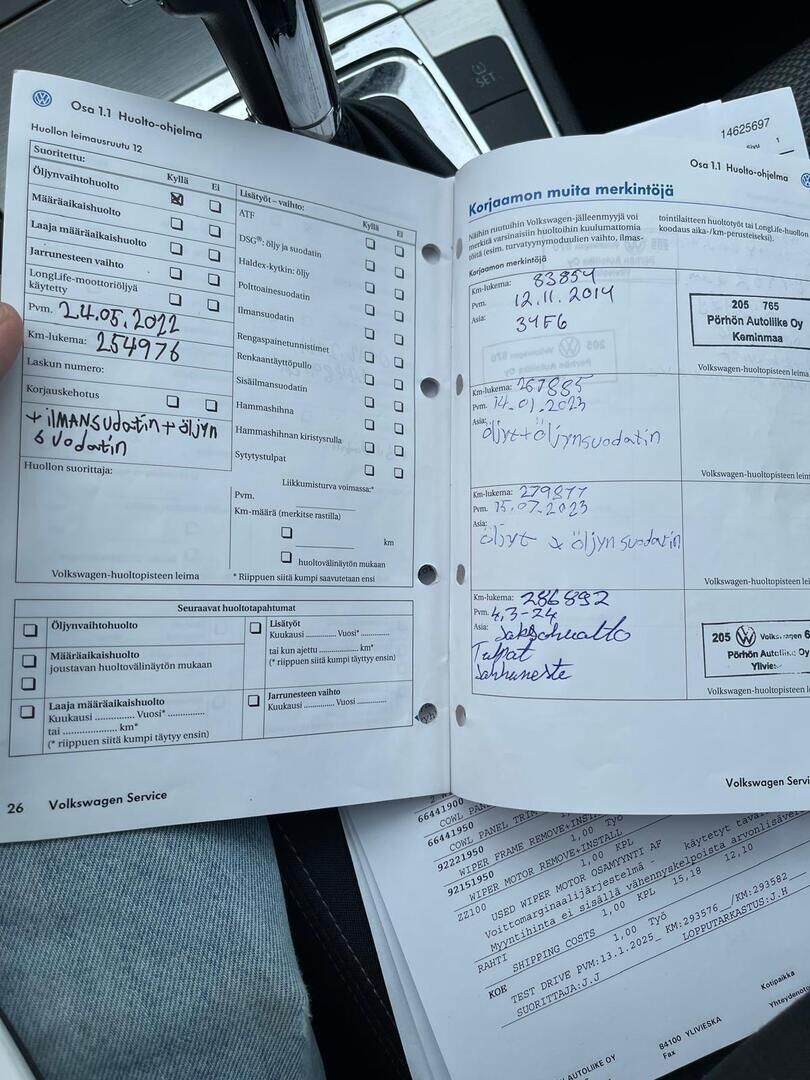 SET
14625697
Sivu
1
Osa 1.1 Huolto-ohjelma
Huollon leimausruutu 12
Suoritettu:
Kyllä Ei
Öljynvaihtohuolto
Määräaikaishuolto
Laaja määräaikaishuolto
Jarrunesteen vaihto
LongLife-moottoriöljyä
käytetty
Pvm. 24.05.2022
Km-lukema: 254976
Laskun numero:
Korjauskehotus
+ ilMANSUdatin + öljyn
suodatin
Huollon suorittaja:
Volkswagen-huoltopisteen leima
Lisätyöt – vaihto:
Kyllä Ei
ATF
DSG®: öljy ja suodatin
Haldex-kytkin: öljy
Polttoainesuodatin
Ilmansuodatin
Rengaspainetunnistimet
Renkaantäyttöpullo
Sisäilmansuodatin
Hammashihna
Hammashihnan kiristysrulla
Sytytystulpat
Liikkumisturva voimassa:*
Pvm.
Km-määrä (merkitse rastilla)
km
huoltovälinäytön mukaan
* Riippuen siitä kumpi saavutetaan ensi
Seuraavat huoltotapahtumat
Öljynvaihtohuolto
Määräaikaishuolto
joustavan huoltovälinäytön mukaan
Laaja määräaikaishuolto
Kuukausi .............. Vuosi* ..............
tai .................... km*
(* riippuen siitä kumpi täytyy ensin)
Lisätyöt
Kuukausi ........... Vuosi* ...........
tai kun ajettu ................ km*
(* riippuen siitä kumpi täyttyy ensin)
Jarrunesteen vaihto
Kuukausi ........... Vuosi ...........
26 Volkswagen Service
Osa 1.1 Huolto-ohjelma
Korjaamon muita merkintöjä
Näihin ruutuihin Volkswagen-jälleenmyyjä voi
merkitä varsinaisiin huoltoihin kuulumattomia
töitä (esim. turvatyynymoduulien vaihto, ilmas-
tointilaitteen huoltotyöt tai LongLife-huollon
koodaus aika-/km-perusteiseksi).
Korjaamon merkintöjä
Km-lukema: 83854
Pvm. 12.11.2014
Asia: 34F6
205 765
Pörhön Autoliike Oy
Keminmaa
Volkswagen-huoltopisteen leima
Km-lukema: 267885
Pvm. 14.01.2023
Asia:
öljyt + öljynsuodatin
Volkswagen-huoltopisteen leima
Km-lukema: 279877
Pvm. 15.07.2023
Asia:
öljyt + öljynsuodatin
Volkswagen-huoltopisteen
Km-lukema: 286892
Pvm. 4.3-24
Asia: Jaksohuolto
Tulpat
Jarruneste
205 Volkswagen 6
Pörhön Autoliike Oy
Ylivies
Volkswagen-huoltopisteen
Volkswagen Servi
66441900
COWL PAN
66441950
COWL PANEL TRIM
92221950 1,00 Työ
WIPER FRAME REMOVE+INST
92151950 1,00 KPL
WIPER MOTOR REMOVE+INSTALL
ZZ100
USED WIPER MOTOR OSAMYYNTI AF käytetyt tava
Voittomarginaalijärjestelmä -
Myyntihinta ei sisällä vähennyskelpoista arvonlisäve
RAHTI 1,00 KPL 15,18 12,10
SHIPPING COSTS
KOE 1,00 Työ
TEST DRIVE PVM:13.1.2025_ KM:293576__/KM:293582__
SUORITTAJA:J.J LOPPUTARKASTUS:J.H
AUTOLIIKE OY
84100 YLIVIESKA
Fax
Kotipaikka
Yhteydenoto